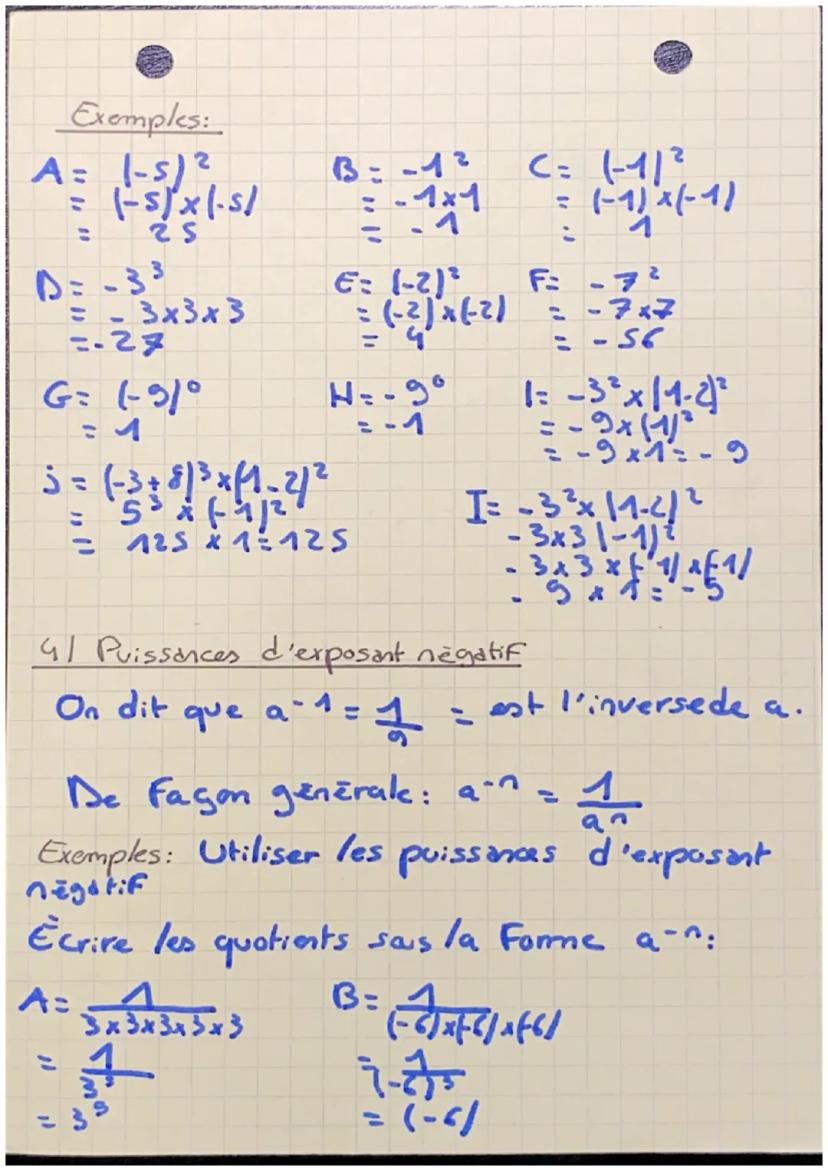 Exemples:
A = (-5)² B = -1² C = (-1)²
= (-5) x (-5) = -1x1 = (-1) x (-1)
= 25 = -1 = 1
D = -3³ E = (-2)² F = -7²
= -3x3x3 = (-2) x (-2) = -7x7
= -27 = 4 = -56
G = (-9)⁰ H = -9⁰ I = -3² x (1-2)²
= 1 = -1 = -9x(-1)²
= -9 x1 = -9
j = (-3+8)³ x (1-2)²
= 5³ x (-1)²
= 125 x 1 = 125
I = -3² x (1-2)²
-3x3 (-1)²
-3x3 x (-1) x (-1)
-9 x 1 = -9
4/ Puissances d'exposant négatif
On dit que a-1 = 1/a = est l'inverse de a.
De façon générale: a-n = 1/aⁿ
Exemples: Utiliser les puissances d'exposant
négatif
Écrire les quotients sous la forme a-n:
A = 1/3x3x3x3x3 B = 1/(-6)x(-6)x(-6)
= 1/3⁵ = 1/(-6)³
= 3⁵ = (-6)